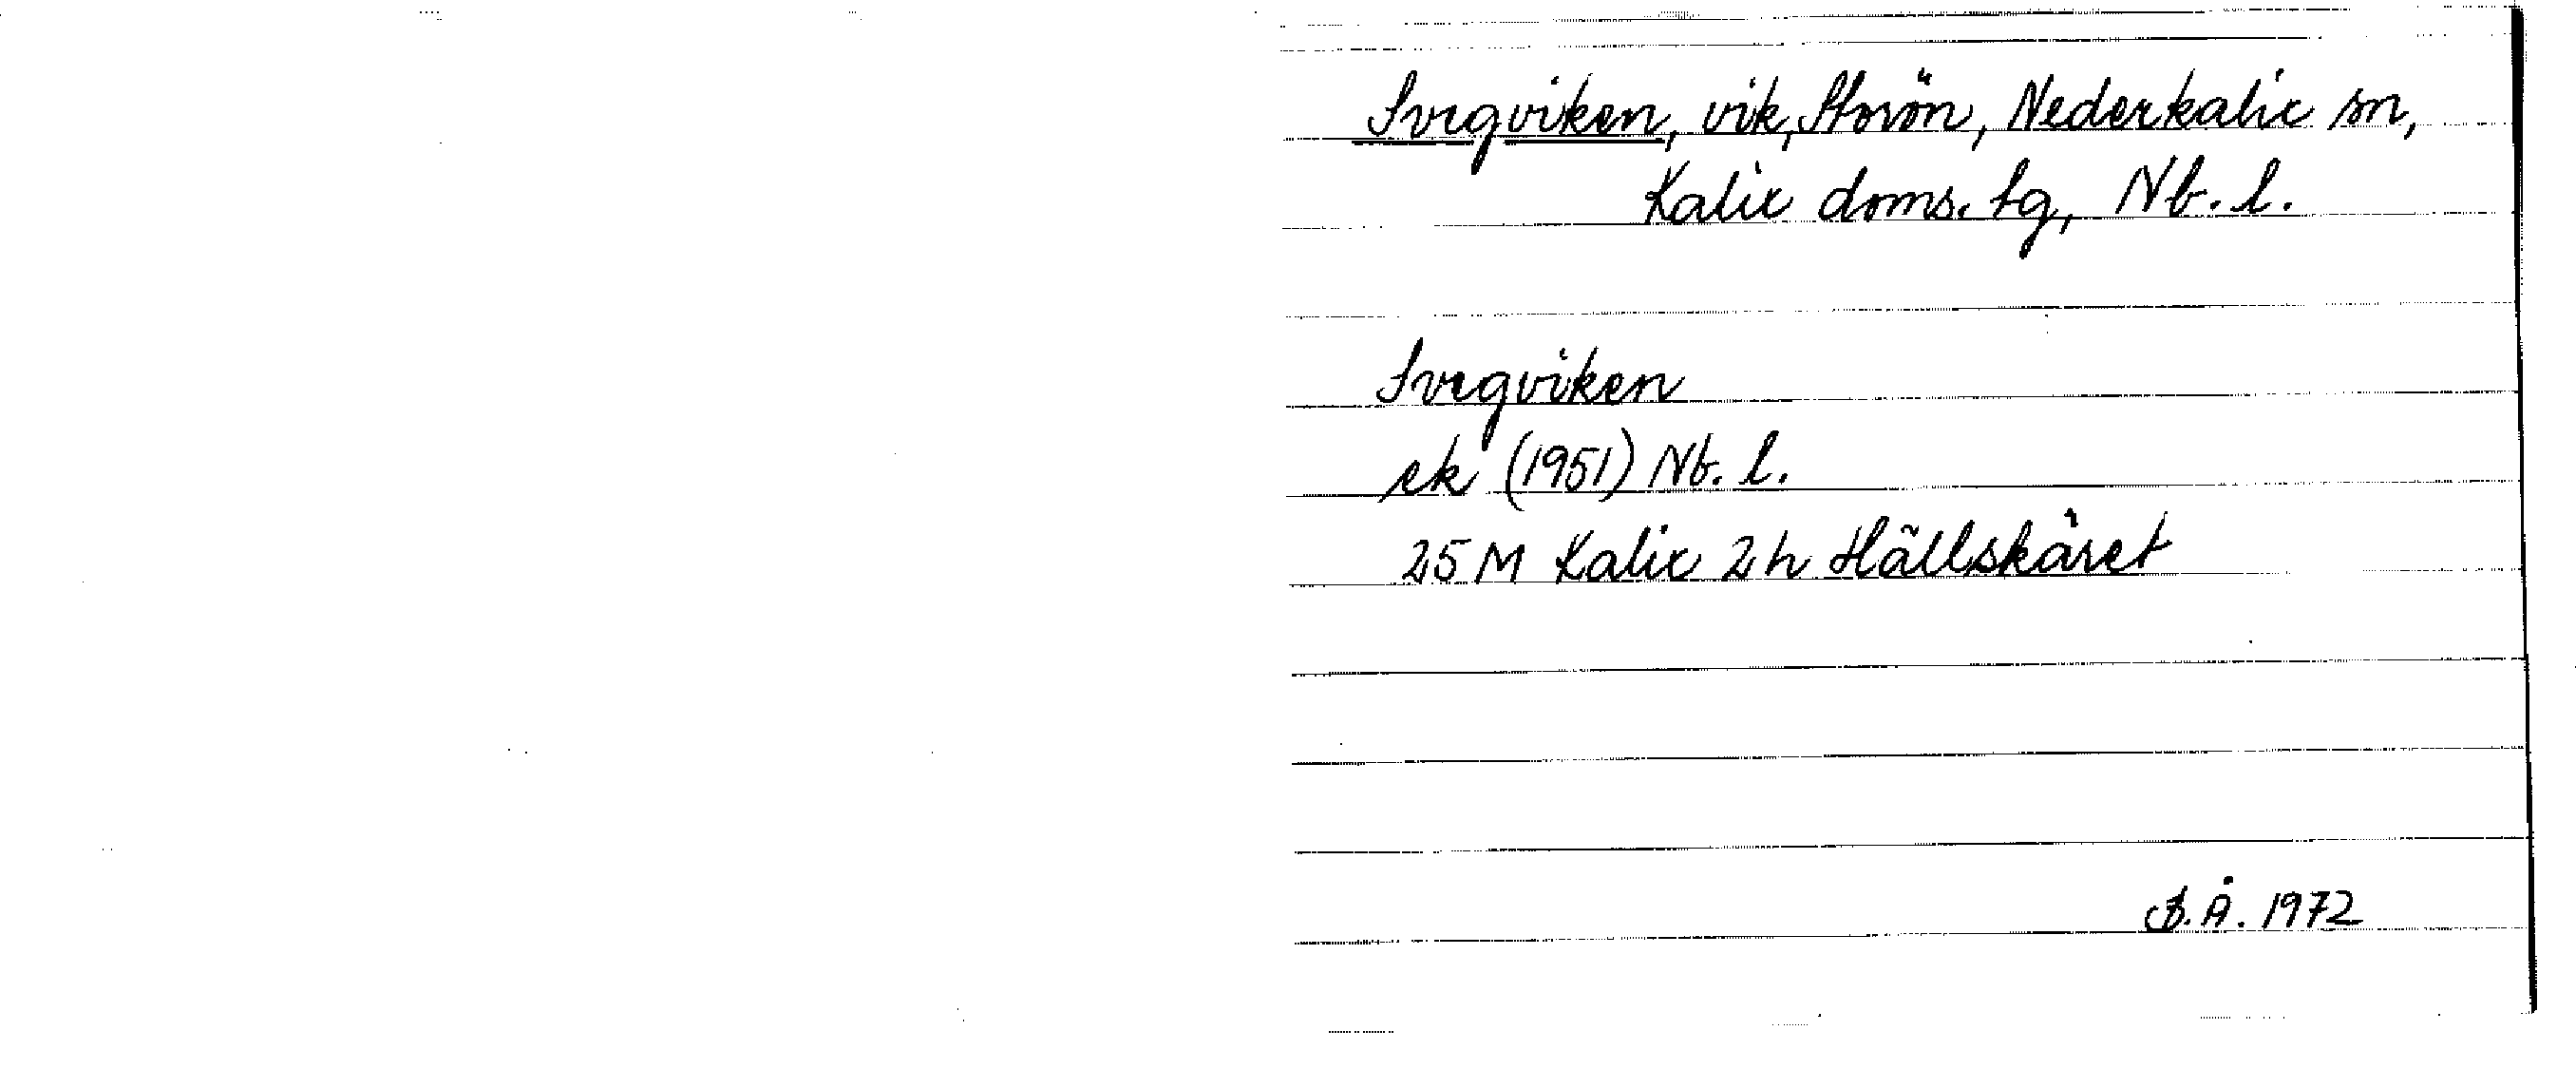 Sorgviken, vik, Storön, Nederkalix sn,
Kalix doms. tg, Nb. l.
Sorgviken
ek (1951) Nb. l.
25 M Kalix 2 h Hällskäret
B.Å. 1972